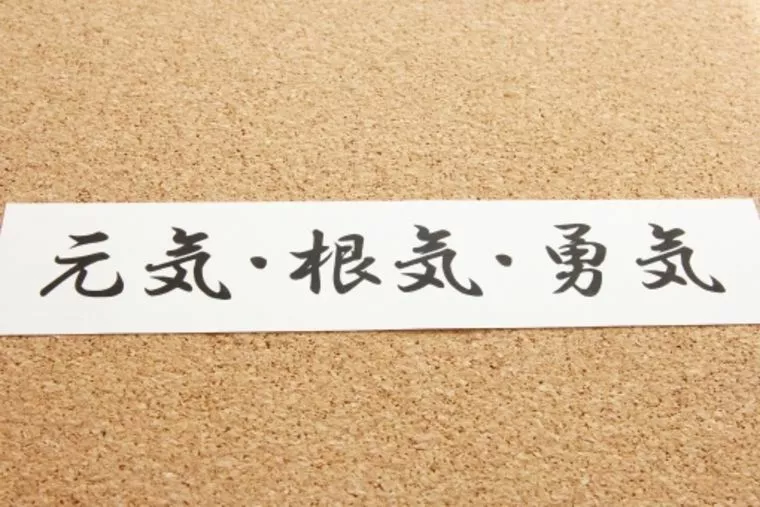 元気・根気・勇気